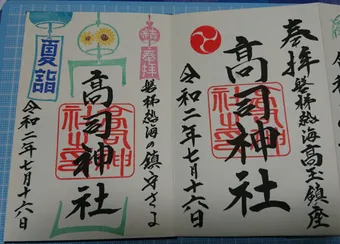 奉拝
磐梯熱海高玉鎮座
高司神社
令和二年七月十六日
奉拝
磐梯熱海の鎮守さま
高司神社
夏詣
令和二年七月十六日